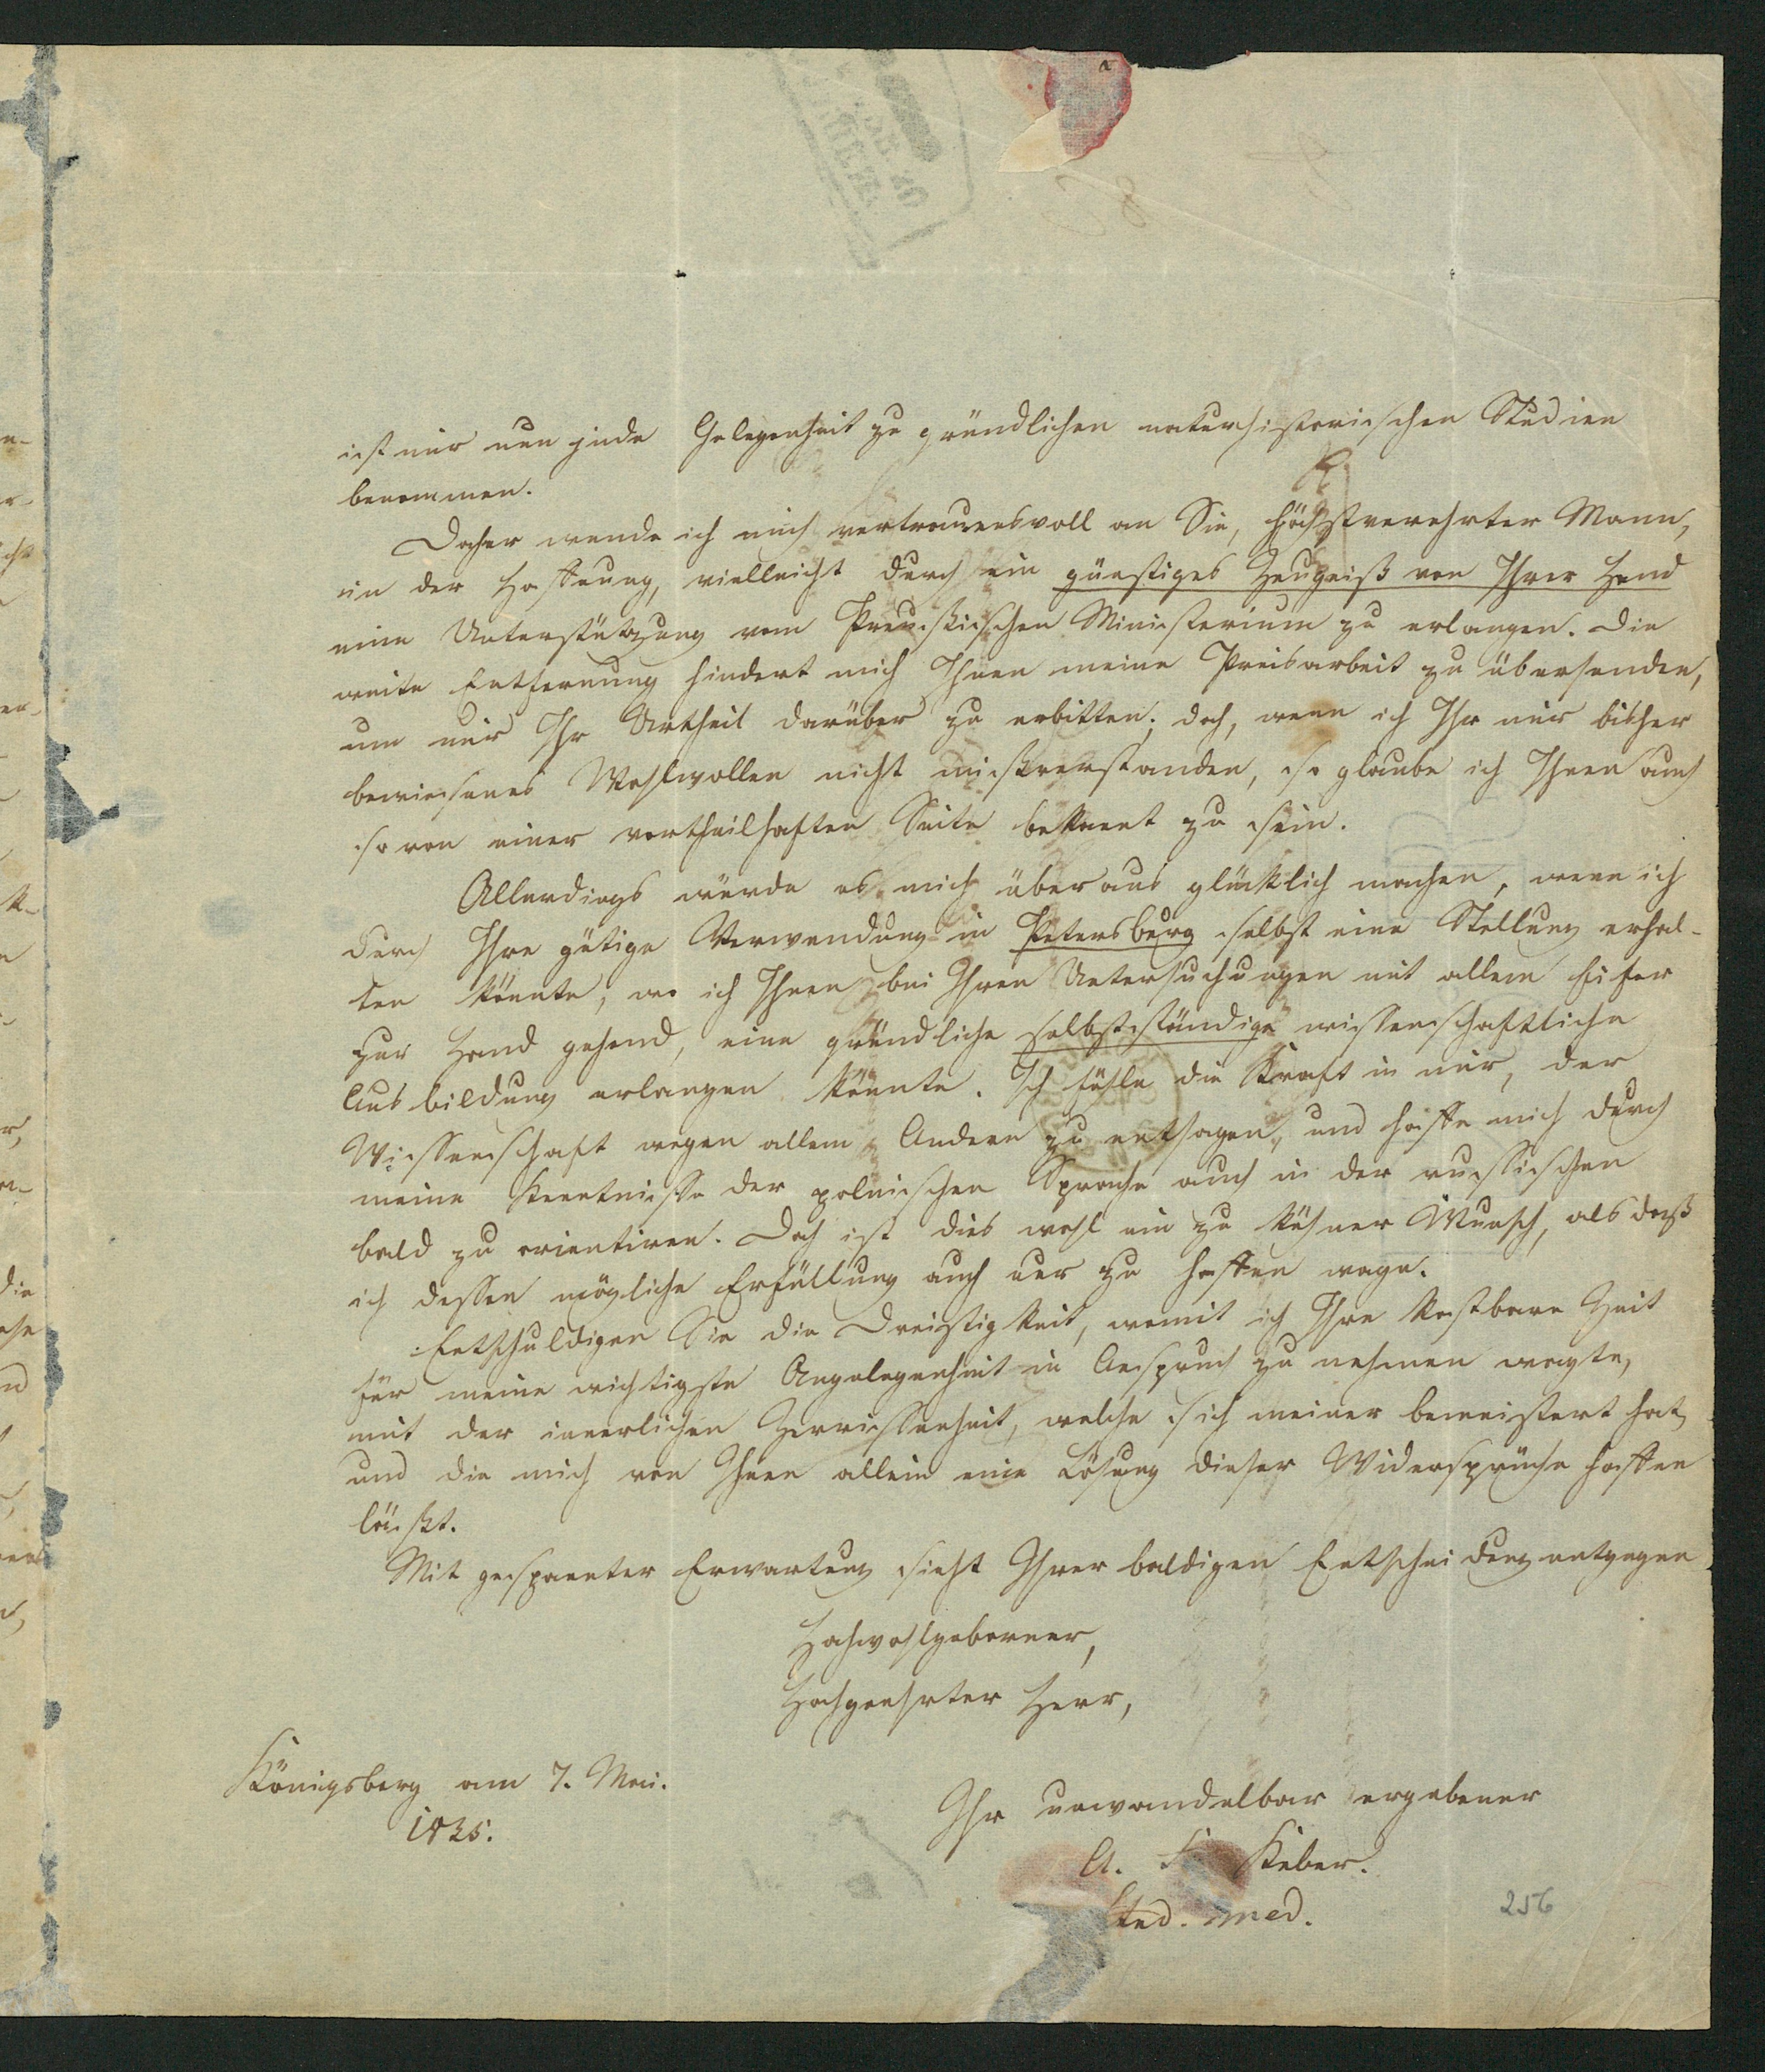 ist mir nun jede Gelegenheit zu gründlichen naturhistorischen Studien
benommen.
Daher wende ich mich vertrauensvoll an Sie, höchstverehrter Mann,
in der Hoffnung, vielleicht durch ein günstiges Zeugniß von Ihrer Hand
eine Unterstützung vom Preußischen Ministerium zu erlangen. Die
weite Entfernung hindert mich Ihnen meine Preisarbeit zu übersenden,
um mir Ihr Urtheil darüber zu erbitten; doch, wenn ich Ihr mir bisher
bewiesenes Wohlwollen nicht mißverstanden, so glaube ich Ihnen auch
so von einer vortheilhaften Seite bekannt zu sein.
Allerdings würde es mich überaus glücklich machen, wenn ich
durch Ihre gütige Verwendung in Petersburg selbst eine Stellung erhal-
ten könnte, wo ich Ihnen bei Ihren Untersuchungen mit allem Eifer
zur Hand gehend, eine gründliche selbstständige wissenschaftliche
Ausbildung erlangen könnte. Ich fühle die Kraft in mir, der
Wissenschaft wegen allem Andern zu entsagen, und hoffe mich durch
meine Kenntnisse der polnischen Sprache auch in der russischen
bald zu orientiren. Doch ist dies wohl ein zu kühner Wunsch, als daß
ich dessen mögliche Erfüllung auch nur zu hoffen wage.
Entschuldigen Sie die Dreistigkeit, womit ich Ihre kostbare Zeit
für meine wichtigste Angelegenheit in Anspruch zu nehmen wagte,
mit der innerlichen Zerrissenheit, welche sich meiner bemeistert hat,
und die mich von Ihnen allein eine Lösung dieser Widersprüche hoffen
läßt.
Mit gespannter Erwartung sieht Ihrer baldigen Entscheidung entgegen
Hochwohlgeborner,
Hochgeehrter Herr,
Königsberg am 7. Mai.
1835.
Ihr unwandelbar ergebener
A. F. Keber.
Stud. med.
256